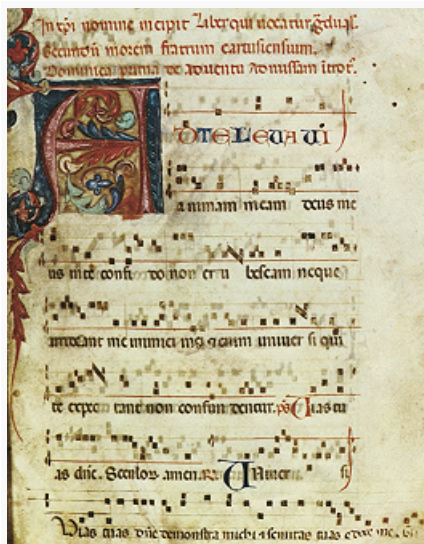 In xp̄i nomine incipit liber qui uocatur g̃dual̃.
secundũ morem fratrum cartusiensium.
Dominica prima de aduentu ad missam introt̃.
AD TE LEUAUI
animam meam deus me
us in te confi do non eru bescam neque
irrideant me inimici mei ⁊ enim uniuer si qui
te expec tant non confun dentur. p̃s Uias tu
as dñe. Seculoꝝ amen. R̃ Uniuer si
Uias tuas dñe demonstra michi ⁊ semitas tuas edoce me.